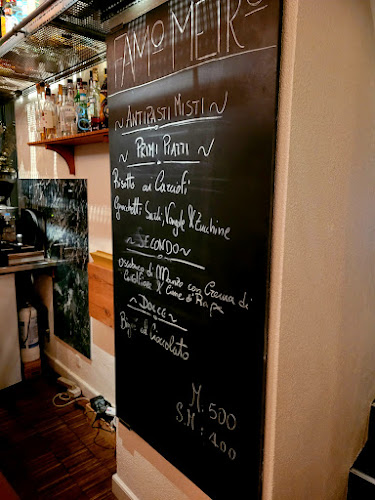 FAMO METRO
~ ANTIPASTI MISTI ~
~ PRIMI PIATTI ~
Risotto ai Carciofi
Gnocchetti Sardi, Vongole X Zucchine
~ SECONDO ~
di Manzo con Crema di
Cavolfiore X Cime di Rapa
~ DOLCE ~
al Cioccolato
M. 500
S.M: 400